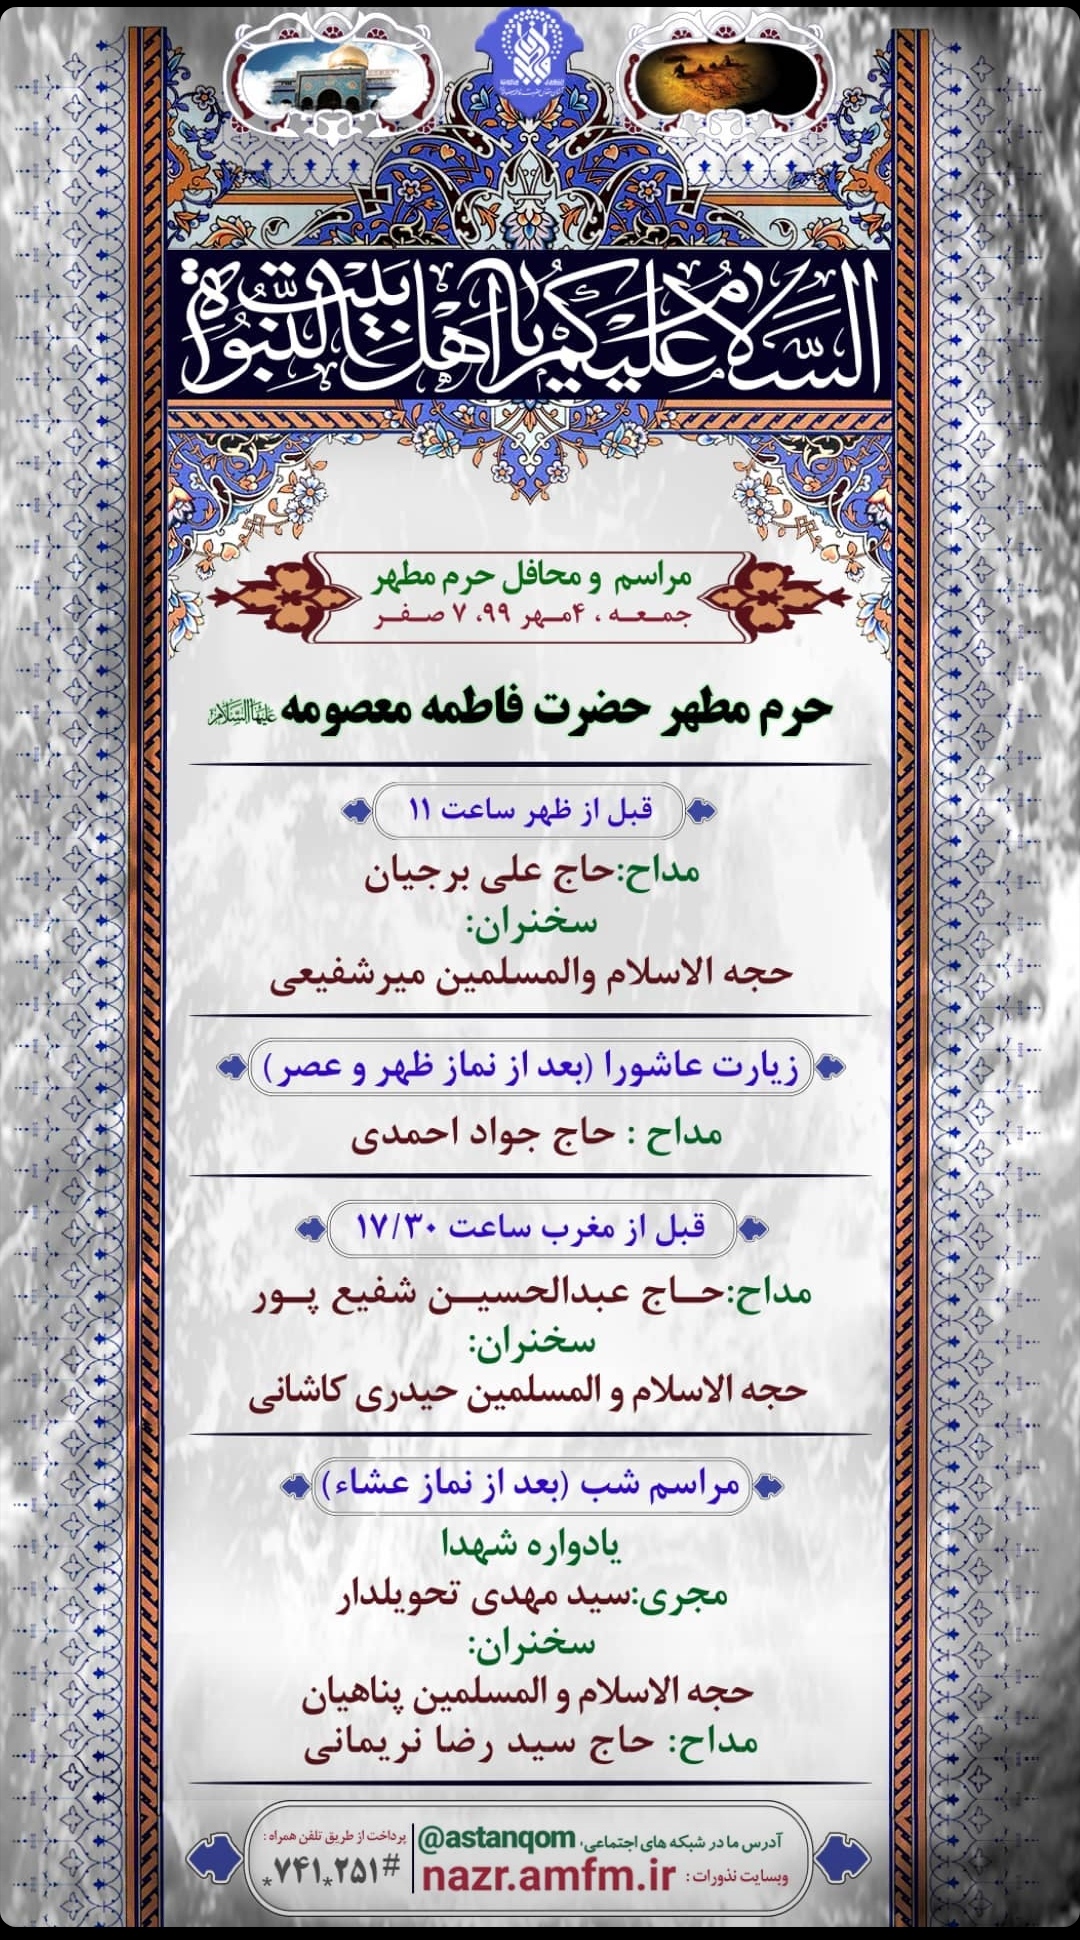 السَّلامُ عَلَيْكُمْ يا أَهْلَ بَيْتِ النُّبُوَّةِ
مراسم و محافل حرم مطهر
جمعه ، ۴مهر ۹۹، ۷ صفر
حرم مطهر حضرت فاطمه معصومه علیهاالسلام
قبل از ظهر ساعت ۱۱
مداح:حاج علی برجیان
سخنران:
حجه الاسلام والمسلمین میرشفیعی
زیارت عاشورا (بعد از نماز ظهر و عصر)
مداح : حاج جواد احمدی
قبل از مغرب ساعت ۱۷/۳۰
مداح:حاج عبدالحسین شفیع پور
سخنران:
حجه الاسلام و المسلمین حیدری کاشانی
مراسم شب (بعد از نماز عشاء)
یادواره شهدا
مجری:سید مهدی تحویلدار
سخنران:
حجه الاسلام و المسلمین پناهیان
مداح: حاج سید رضا نریمانی
آدرس ما در شبکه های اجتماعی، @astanqom
وبسایت نذورات : nazr.amfm.ir
پرداخت از طریق تلفن همراه :
*۷۴۱*۲۵۱#